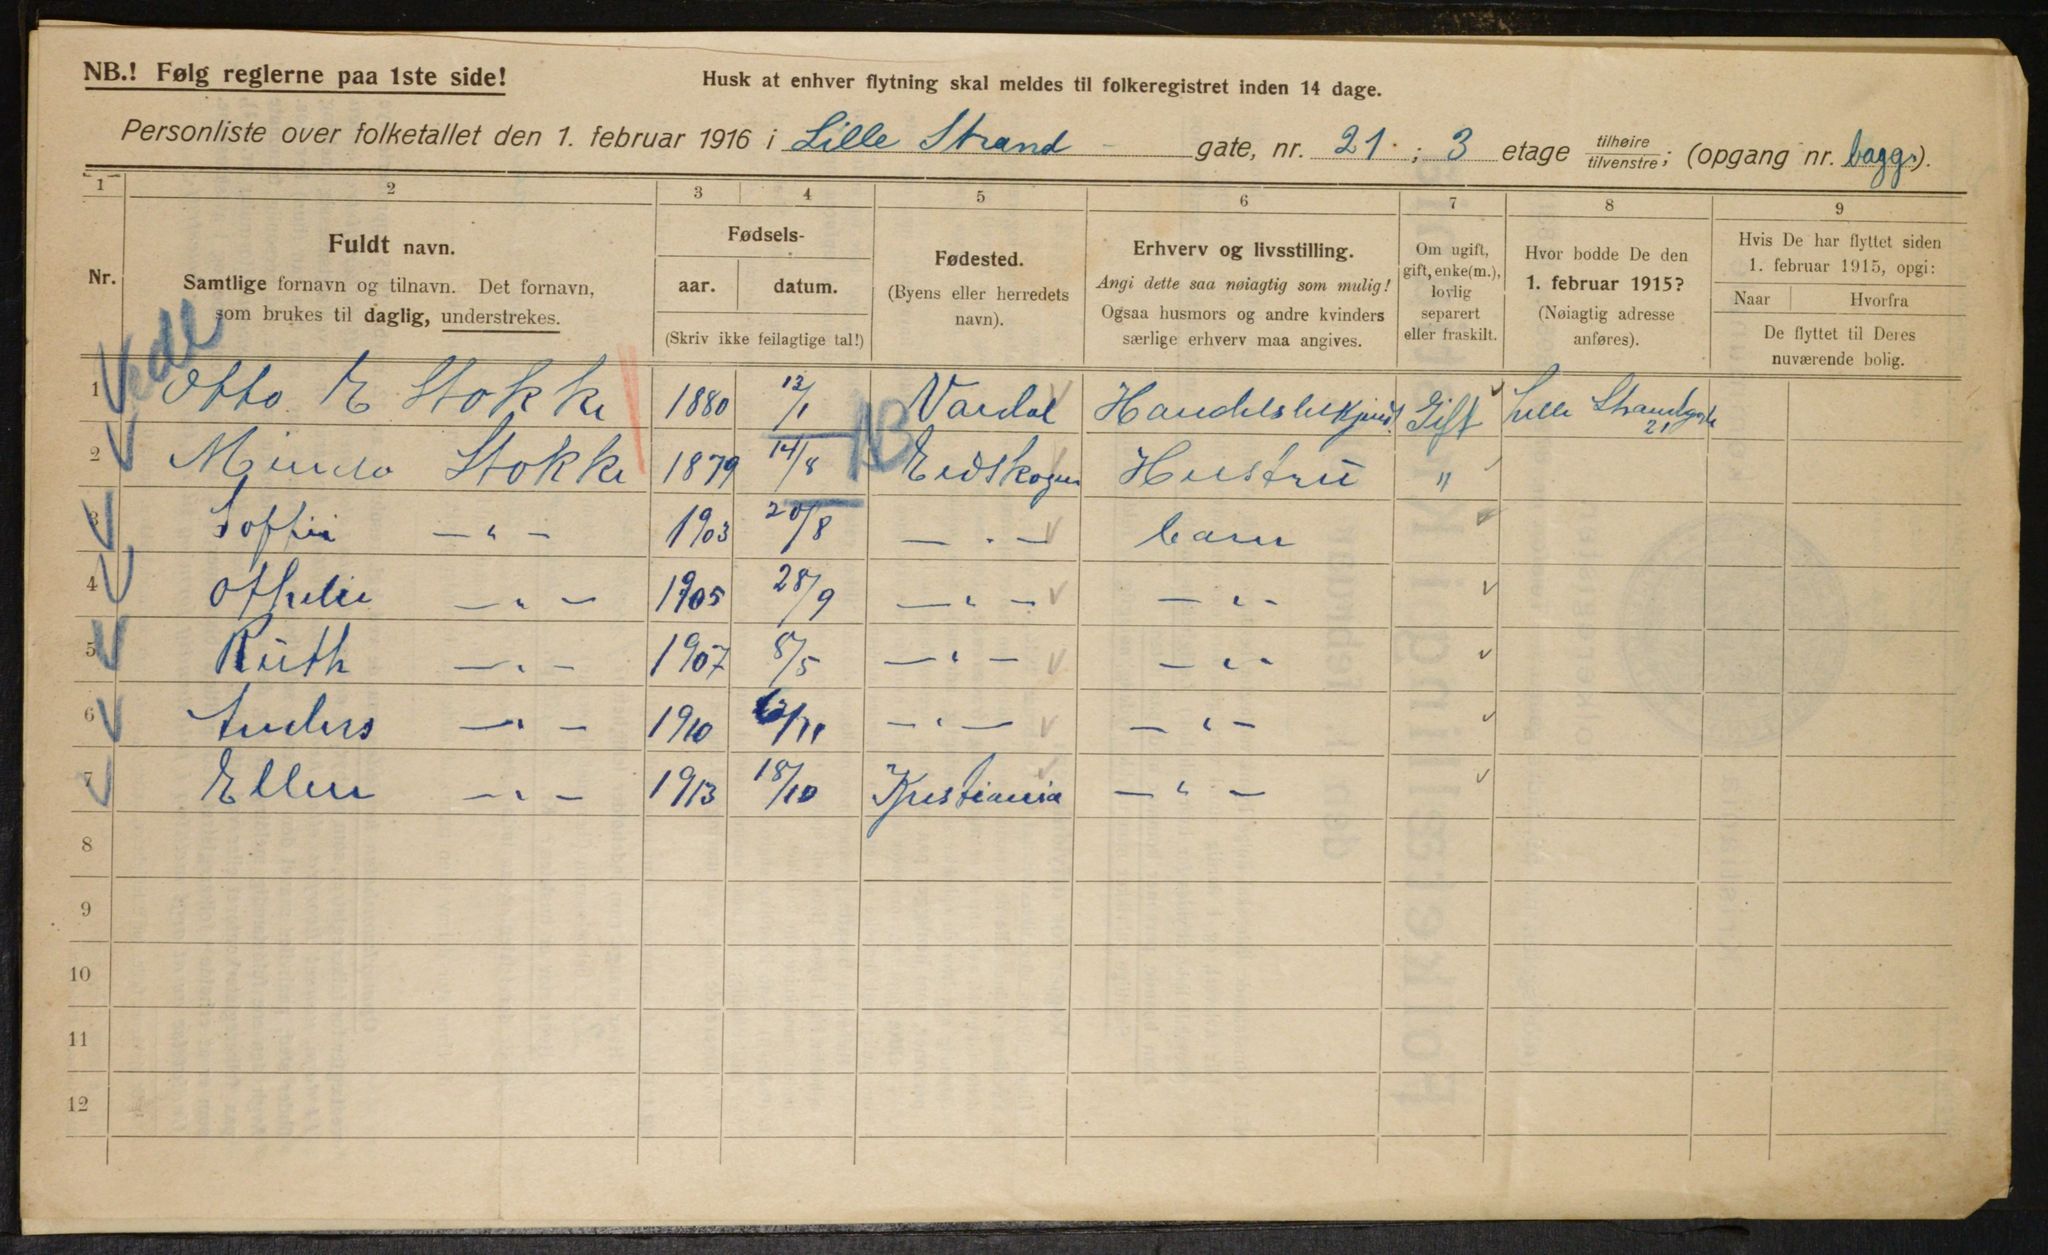 NB.! Følg reglerne paa 1ste side!
Husk at enhver flytning skal meldes til folkeregistret inden 14 dage.
Personliste over folketallet den 1. februar 1916 i Lille Strand gate, nr. 21. ; 3 etage tilhøire/tilvenstre; (opgang nr. bagg.).
1 2 3 4 5 6 7 8 9
Nr.
Fuldt navn.
Samtlige fornavn og tilnavn. Det fornavn,
som brukes til daglig, understrekes.
Fødsels-
aar. datum.
(Skriv ikke feilagtige tal!)
Fødested.
(Byens eller herredets
navn).
Erhverv og livsstilling.
Angi dette saa nøiagtig som mulig!
Ogsaa husmors og andre kvinders
særlige erhverv maa angives.
Om ugift,
gift, enke(m.),
lovlig
separert
eller fraskilt.
Hvor bodde De den
1. februar 1915?
(Nøiagtig adresse
anføres).
Hvis De har flyttet siden
1. februar 1915, opgi:
Naar Hvorfra
De flyttet til Deres
nuværende bolig.
1 Otto E Stokke 1880 12/1 Vardal Gift Lille Strandgate 21
NB
2 Stokke 1879 14/8 Eidskogen Hustru "
3 Soffie — " — 1903 20/8 — " — barn
4 Othelie — " — 1905 28/9 — " — — " —
5 Ruth — " — 1907 8/5 — " — — " —
6 Anders — " — 1910 /11 — " — — " —
7 Ellen — " — 1913 18/10 Kristiania — " —
8
9
10
11
12